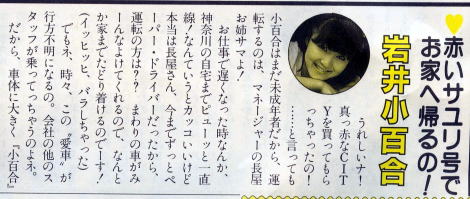 赤いサユリ号で
お家へ帰るの！
岩井小百合
うれしいナ！
真っ赤なCIT
Yを買ってもら
っちゃったの！
……と言っても
小百合はまだ未成年者だから、運
転するのは、マネージャーの長屋
お姉サマ。
お仕事で遅くなった時なんか、
神奈川の自宅までピューッと一直
線！なんていうとカッコいいけど
本当は長屋さん、今までずっとペ
ーパー・ドライバーだったから、
運転の方は？？まわりの車がみ
ーんなよけてくれるので、なんと
か家までたどり着けるのでーす！
（イッヒッヒ、バラしちゃった）
でもネ、時々、この〝愛車〟が
行方不明になるの。会社の他のス
タッフが乗ってっちゃうのよネ。
だから、車体に大きく『小百合